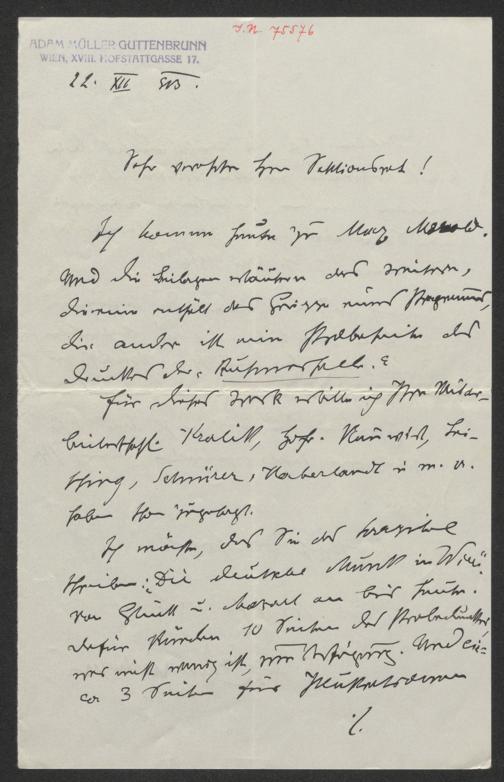 J.N. 75576
ADAM MÜLLER-GUTTENBRUNN
WIEN, XVIII. HOFSTATTGASSE 17.
22. XII 913.
Sehr verehrter Herr Sektionsrat!
Ich komme heute zu Max Morold.
Und die Beilagen erläutern das weitere,
die eine enthält das Gerippe eines Programms,
die andere ist eine Probeseite des
Druckes der "Ruhmeshalle."
Für dieses Werk erbitte ich Ihre Mitar-
beiterschaft. Kralik, Hofr.
Schnürer, Haberlandt u. m. a.
haben schon zugesagt.
Ich möchte, daß Sie das Kapitel
schreiben: "Die deutsche Musik in Wien"
von Gluck u. Mozart an bis heute.
Dafür stünden 10 Seiten des Probedruckes,
was nicht wenig ist, zur Verfügung. Und
ca 3 Seiten für Illustrationen
./.